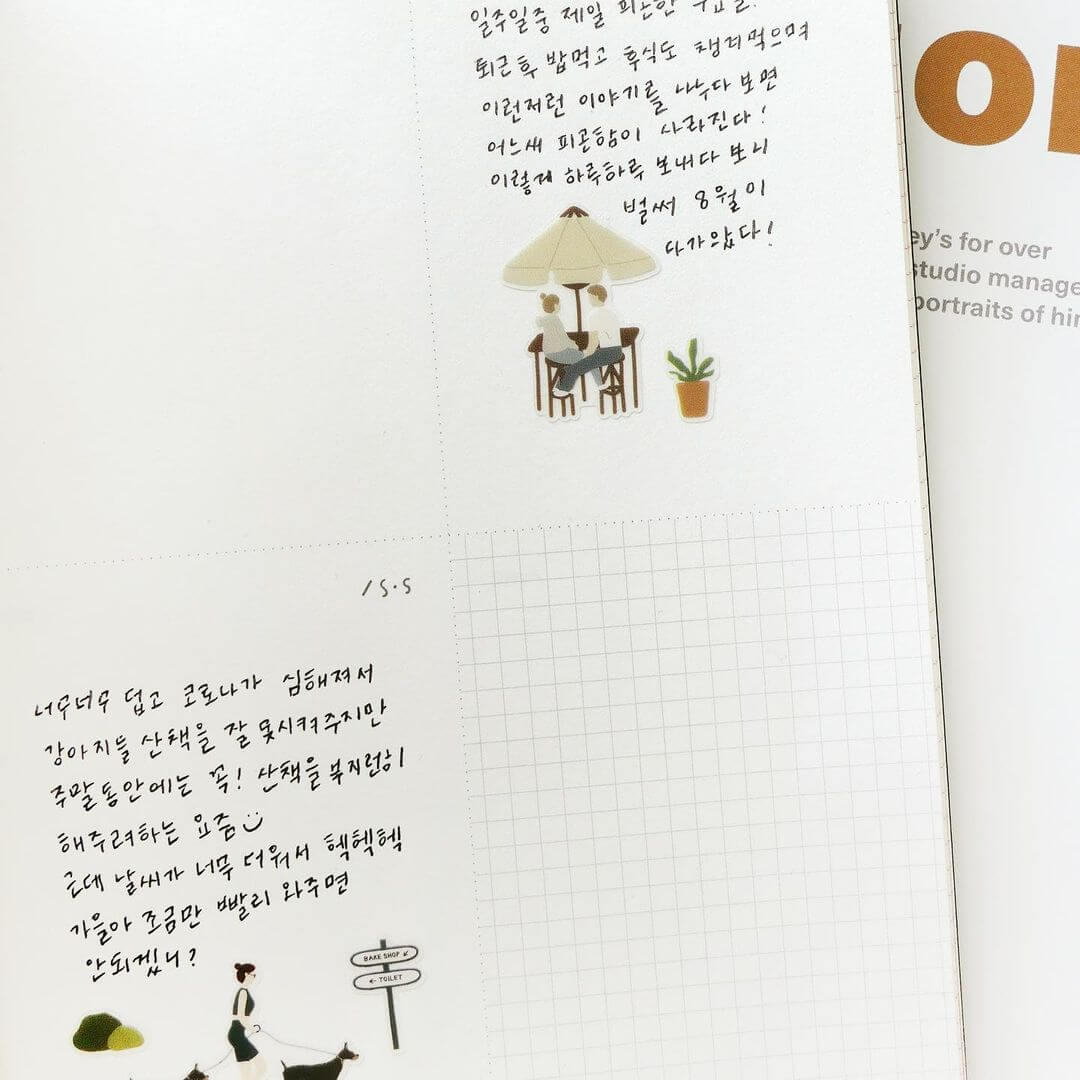 일주일중 제일 피곤한
퇴근후 밥먹고 후식도 챙겨먹으며
이런저런 이야기를 나누다 보면
어느새 피곤함이 사라진다!
이렇게 하루하루 보내다 보니
벌써 8월이
다가왔다!
15.S
너무너무 덥고 코로나가 심해져서
강아지들 산책을 잘 못시켜주지만
주말동안에는 꼭! 산책을 부지런히
해주려하는 요즘
근데 날씨가 너무 더워서 헥헥헥
가을아 조금만 빨리 와주면
안되겠니?
BAKE SHOP ↙
← TOILET
ey's for over
studio manage
portraits of hi